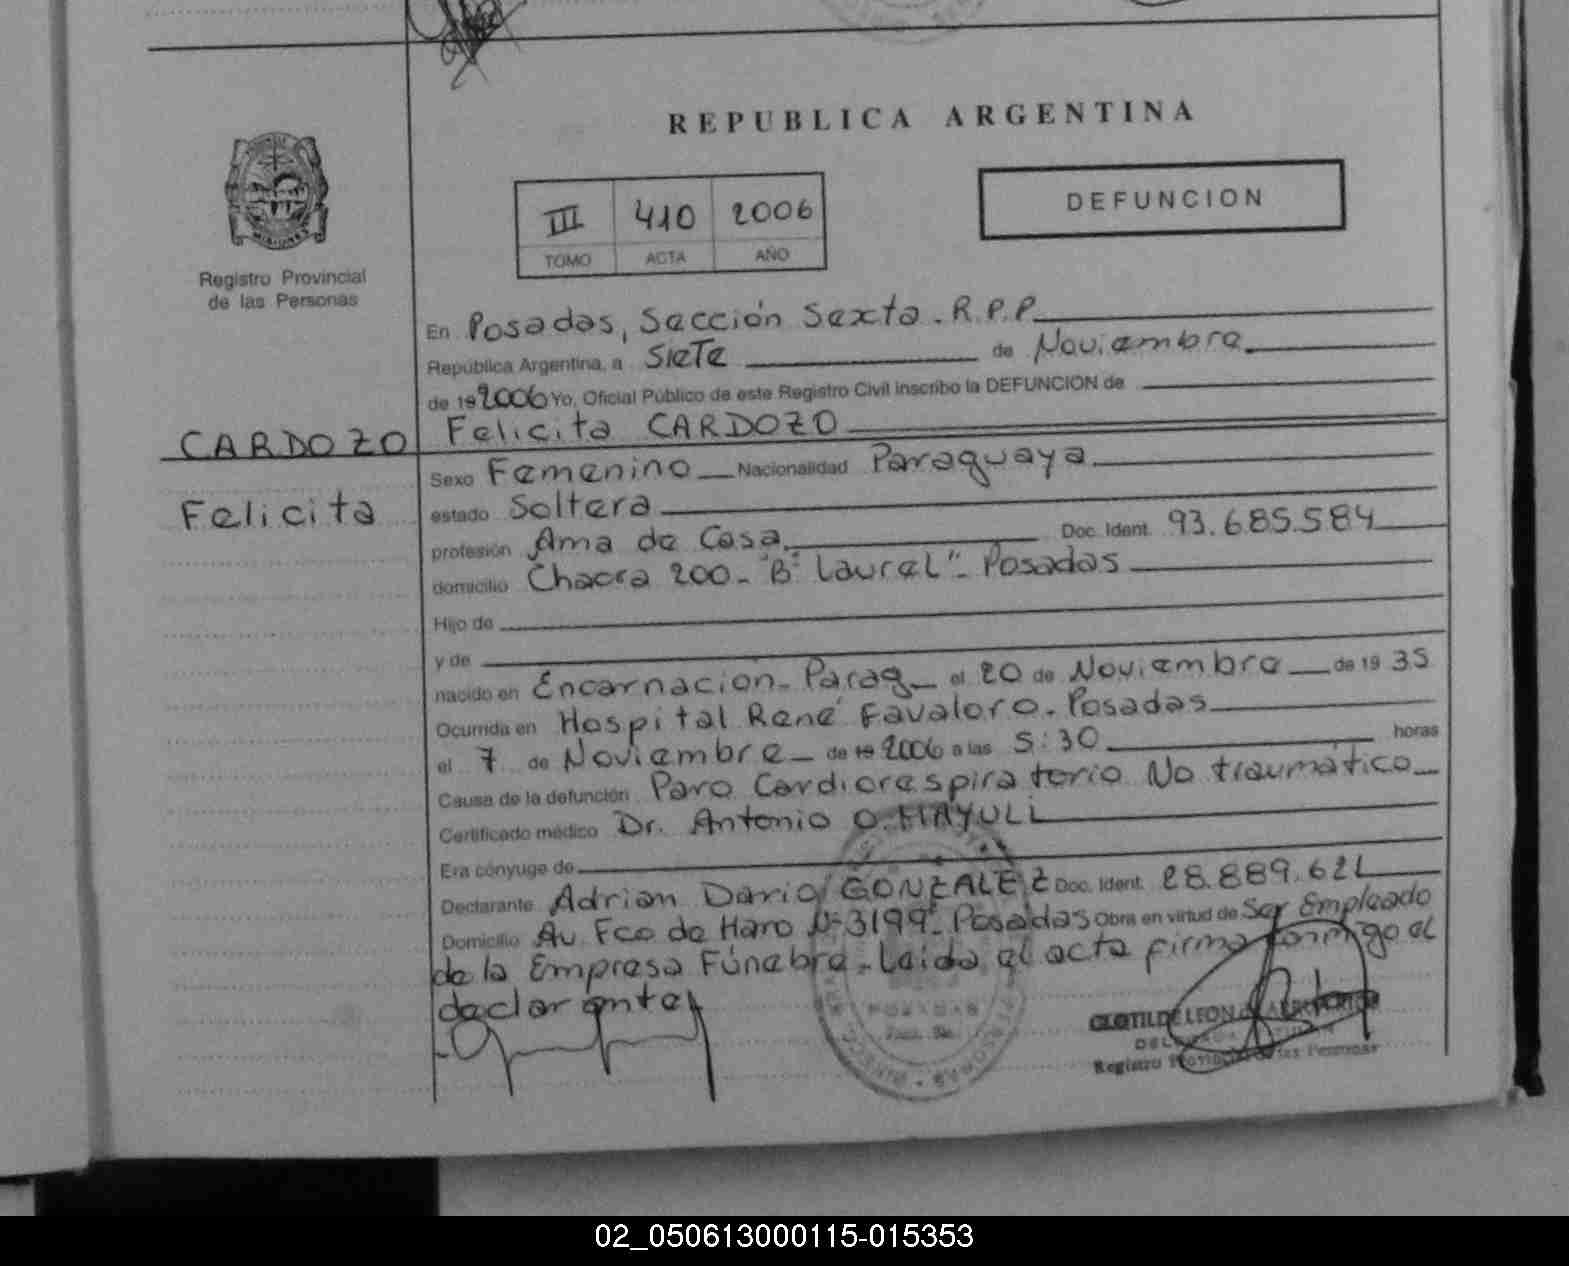 REPUBLICA ARGENTINA
DEFUNCION
III 410 2006
TOMO ACTA AÑO
Registro Provincial
de las Personas
En Posadas, Sección Sexta. R.P.P
República Argentina, a Siete de Noviembre
de 19 2006 Yo, Oficial Público de este Registro Civil inscribo la DEFUNCION de
Felicita CARDOZO
CARDOZO
Felicita
Sexo Femenino Nacionalidad Paraguaya
estado Soltera
profesión Ama de Casa Doc. Ident. 93.685.584
domicilio Chacra 200 - "Bº Laurel" - Posadas
Hijo de
y de
nacido en Encarnacion - Parag el 20 de Noviembre de 19 35
Ocurrida en Hospital René Favaloro. Posadas
el 7 de Noviembre de 19 2006 a las 5:30 horas
Causa de la defunción Paro Cardiorespiratorio No traumático
Certificado médico Dr. Antonio O. MAYULI
Era cónyuge de
Declarante Adrian Dario GONZALEZ Doc. Ident. 28.889.621
Domicilio Av. Fco de Haro Nº 3199 - Posadas Obra en virtud de Ser Empleado
de la Empresa Fúnebre - Leida el acta firma conmigo el
declarante
POSADAS
CLOTILDE LEON
Registro Provincial de las Personas
02_050613000115-015353